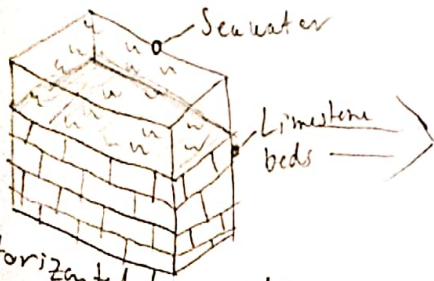 Seawater
Limestone
beds
Horizontal